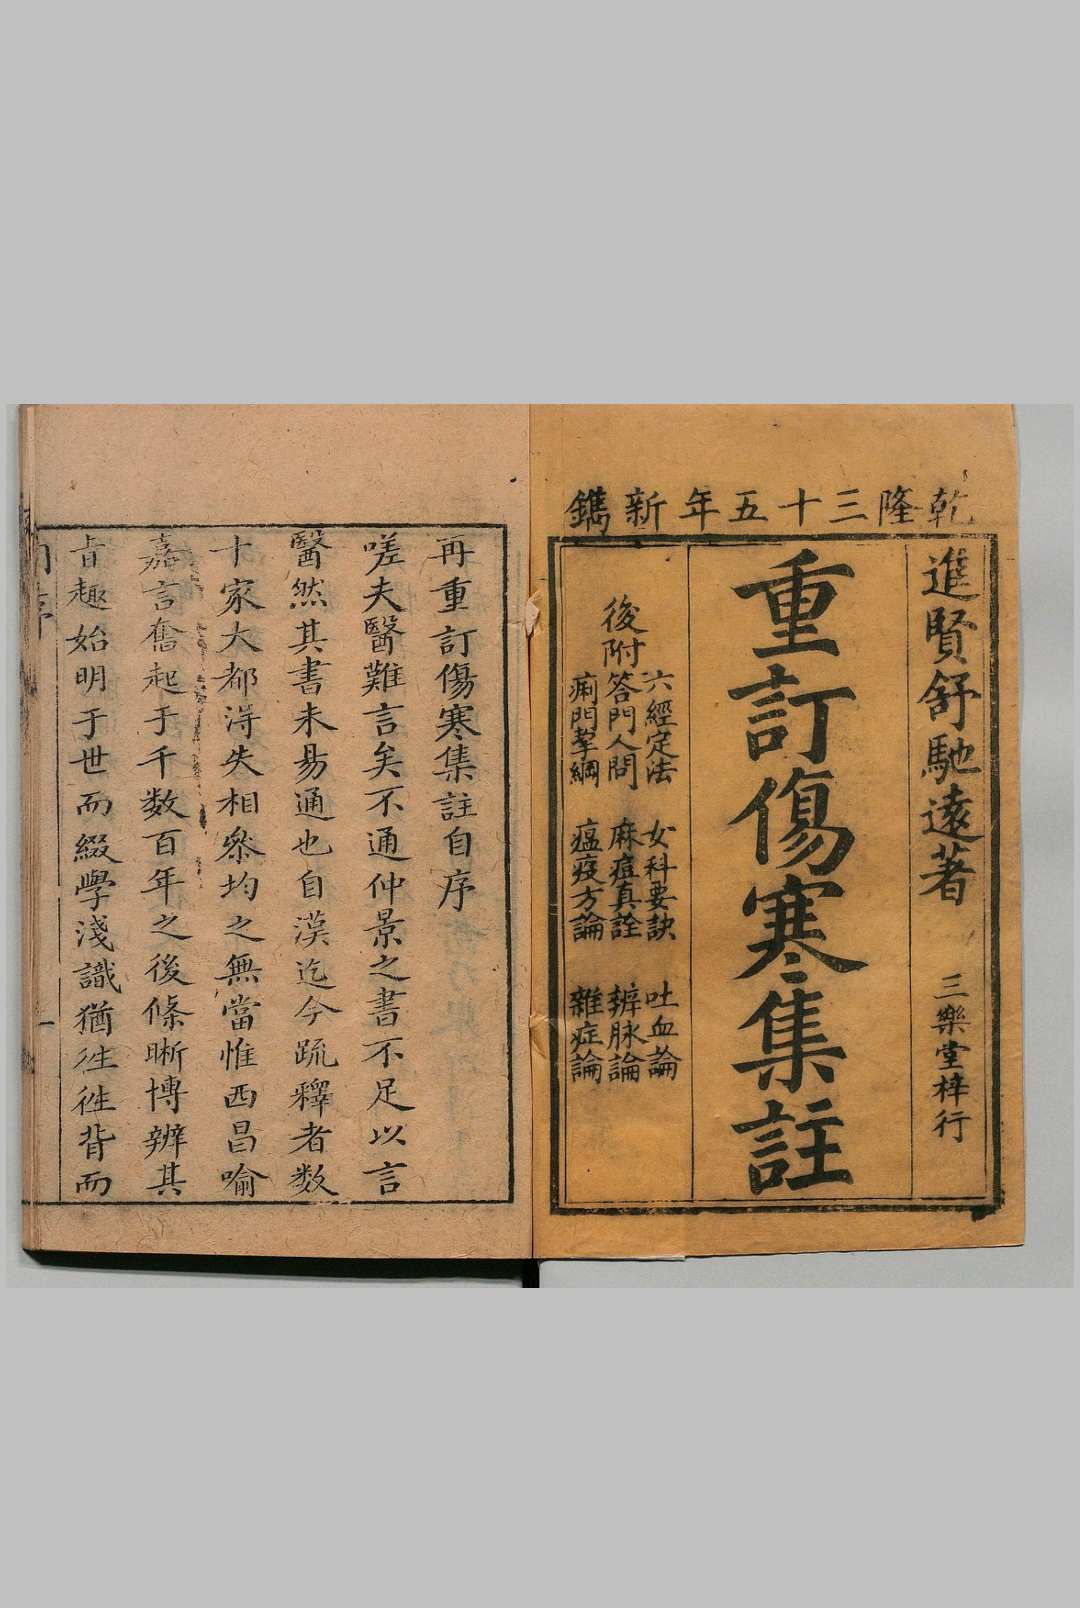 乾隆三十五年新鐫
進賢舒馳遠著
三樂堂梓行
重訂傷寒集註
後附
六經定法 女科要訣 吐血論
答門人問 麻痘真詮 辨脉論
痢門挈綱 瘟疫方論 雜症論
再重訂傷寒集註自序
嗟夫醫難言矣不通仲景之書不足以言
醫然其書未易通也自漢迄今疏釋者数
十家大都得失相叅均之無當惟西昌喻
嘉言奮起于千数百年之後條晰博辨其
旨趣始明于世而綴學淺識猶徃徃背而
自序
一